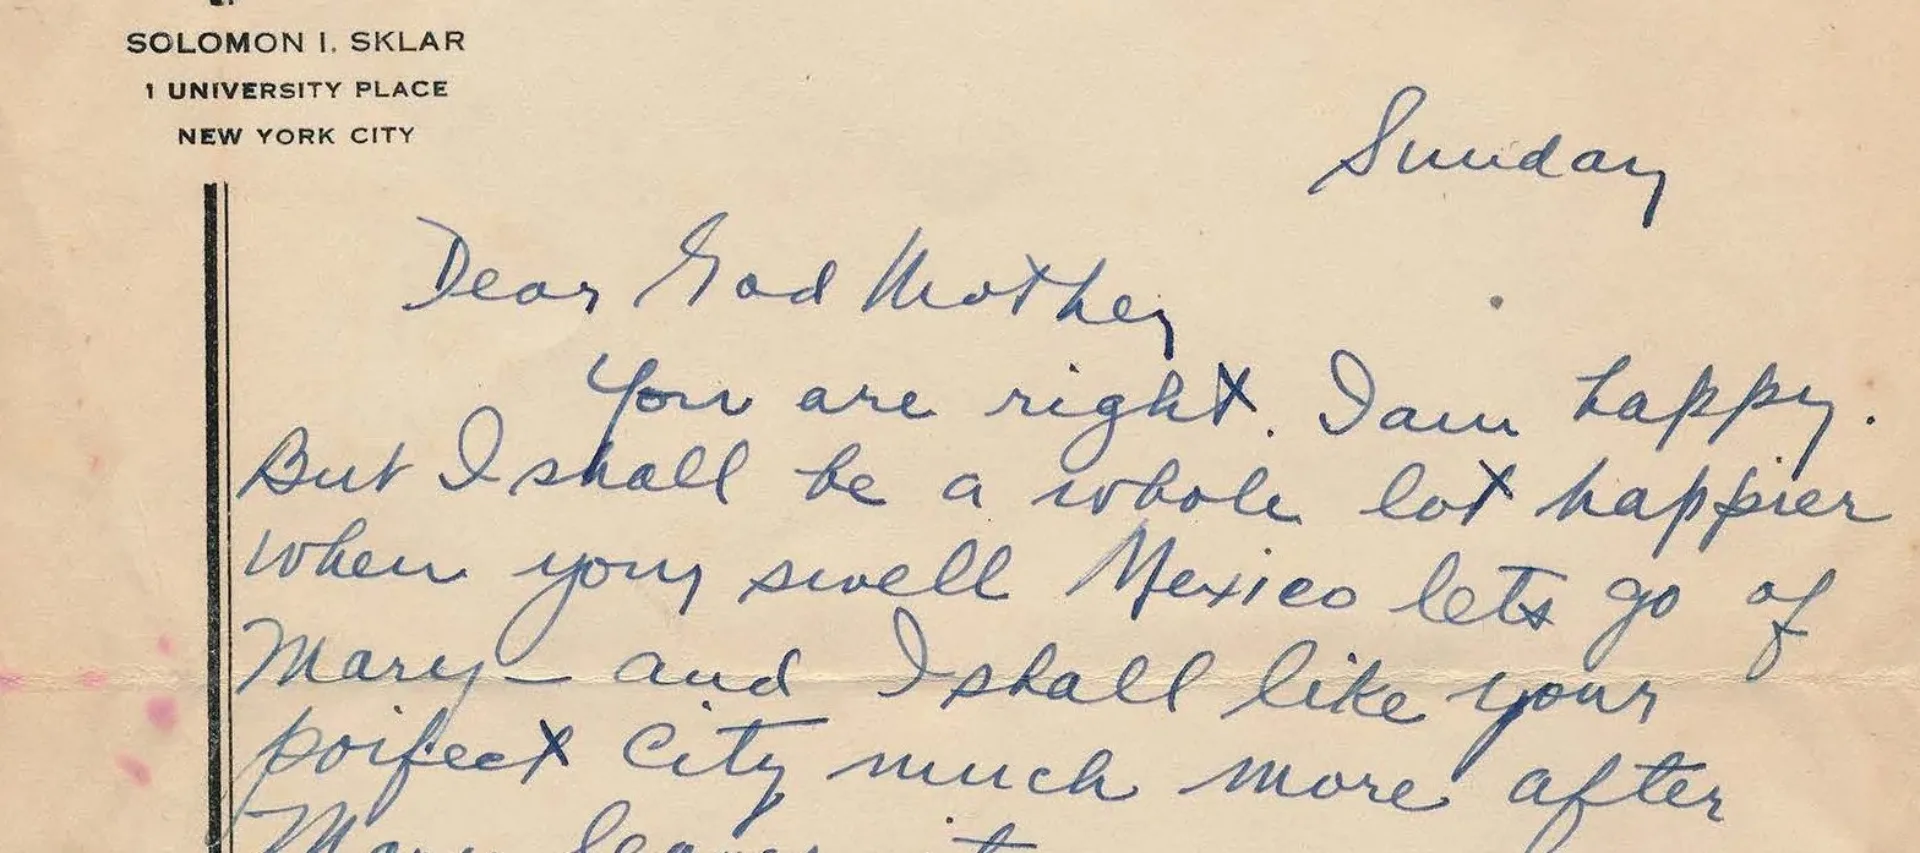 SOLOMON I. SKLAR
1 UNIVERSITY PLACE
NEW YORK CITY
Sunday
Dear God Mother
You are right. I am happy.
But I shall be a whole lot happier
when your swell Mexico lets go of
Mary – and I shall like your
poifect City much more after
Mary leaves it